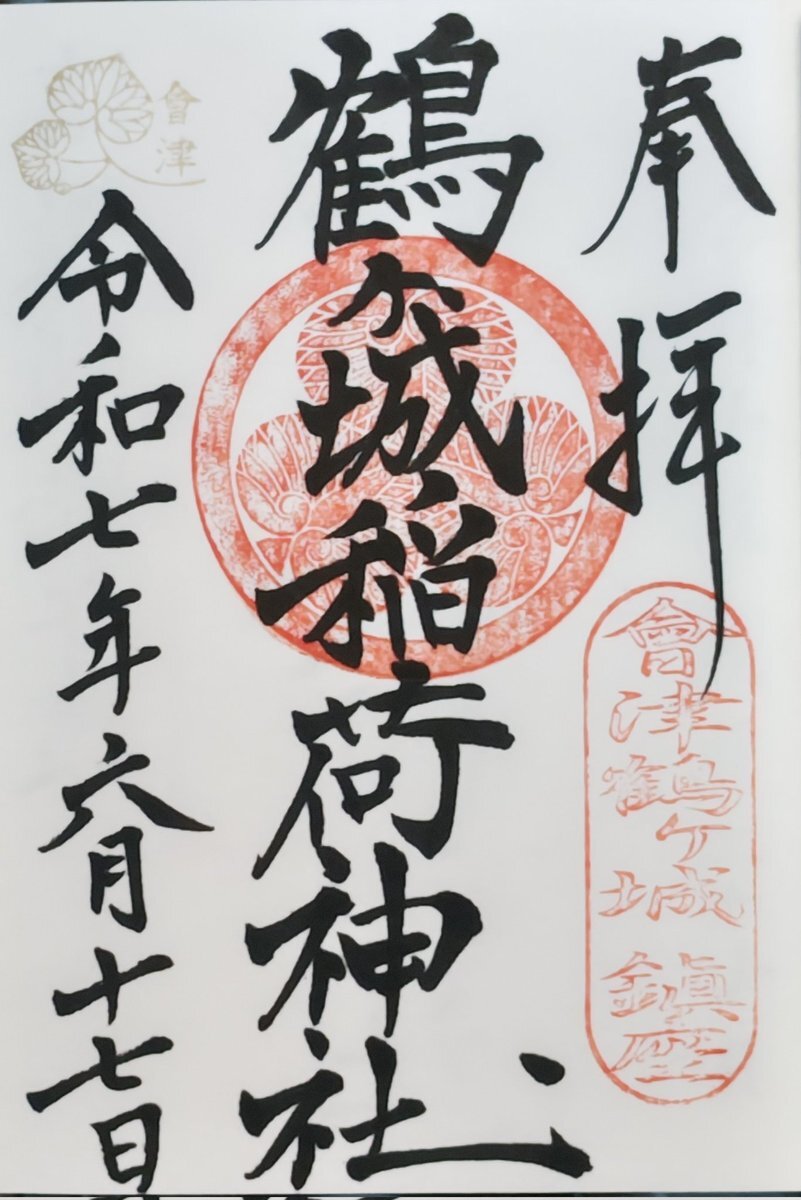 奉拝
會津鶴ヶ城鎮座
鶴ヶ城稲荷神社
會津
令和七年六月十七日